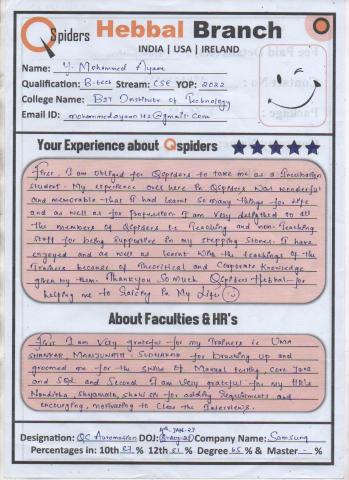 Qspiders Hebbal Branch
INDIA | USA | IRELAND
Name: Y. Mohammed Ayaan
Qualification: B-tech Stream: CSE YOP: 2022
College Name: BIT Institute of Technology
Email ID: mohammedayaan112@gmail.com
Your Experience about Qspiders
First, I am obliged for Qspiders to take me as a Incubation
student. My experience over here in Qspiders was wonderful
and memorable that I had learnt so many things for life
and as well as for profession. I am very delighted to all
the members of Qspiders i.e Teaching and non-Teaching
Staff for being supportive in my stepping stones. I have
enjoyed and as well as learnt with the teachings of the
Trainers because of Theoritical and Corporate Knowledge
given by them. Thankyou so much Qspiders Hebbal for
helping me to in My Life
About Faculties & HR's
First I am very grateful for my Trainers i.e UMA
SHANKAR, MANJUNATH, SUDHAKAR for brushing up and
groomed me for the skills of Manual testing, core Java
and SQL and Second I am very grateful for my HR's
Nanditha, Shyamala, for adding Requirements and
encourging, motivating to clear the Interviews.
Designation: QC Automation DOJ: JAN-23 Company Name: Samsung
Percentages in: 10th 67 % 12th 51 % Degree 65 % & Master - %